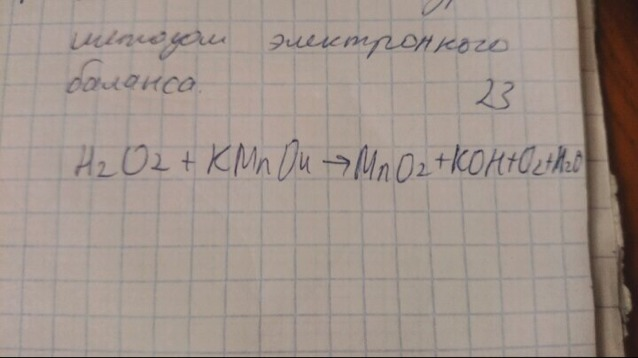 методом электронного
баланса.
23
H₂O₂ + KMnO₄ → MnO₂ + KOH + O₂ + H₂O